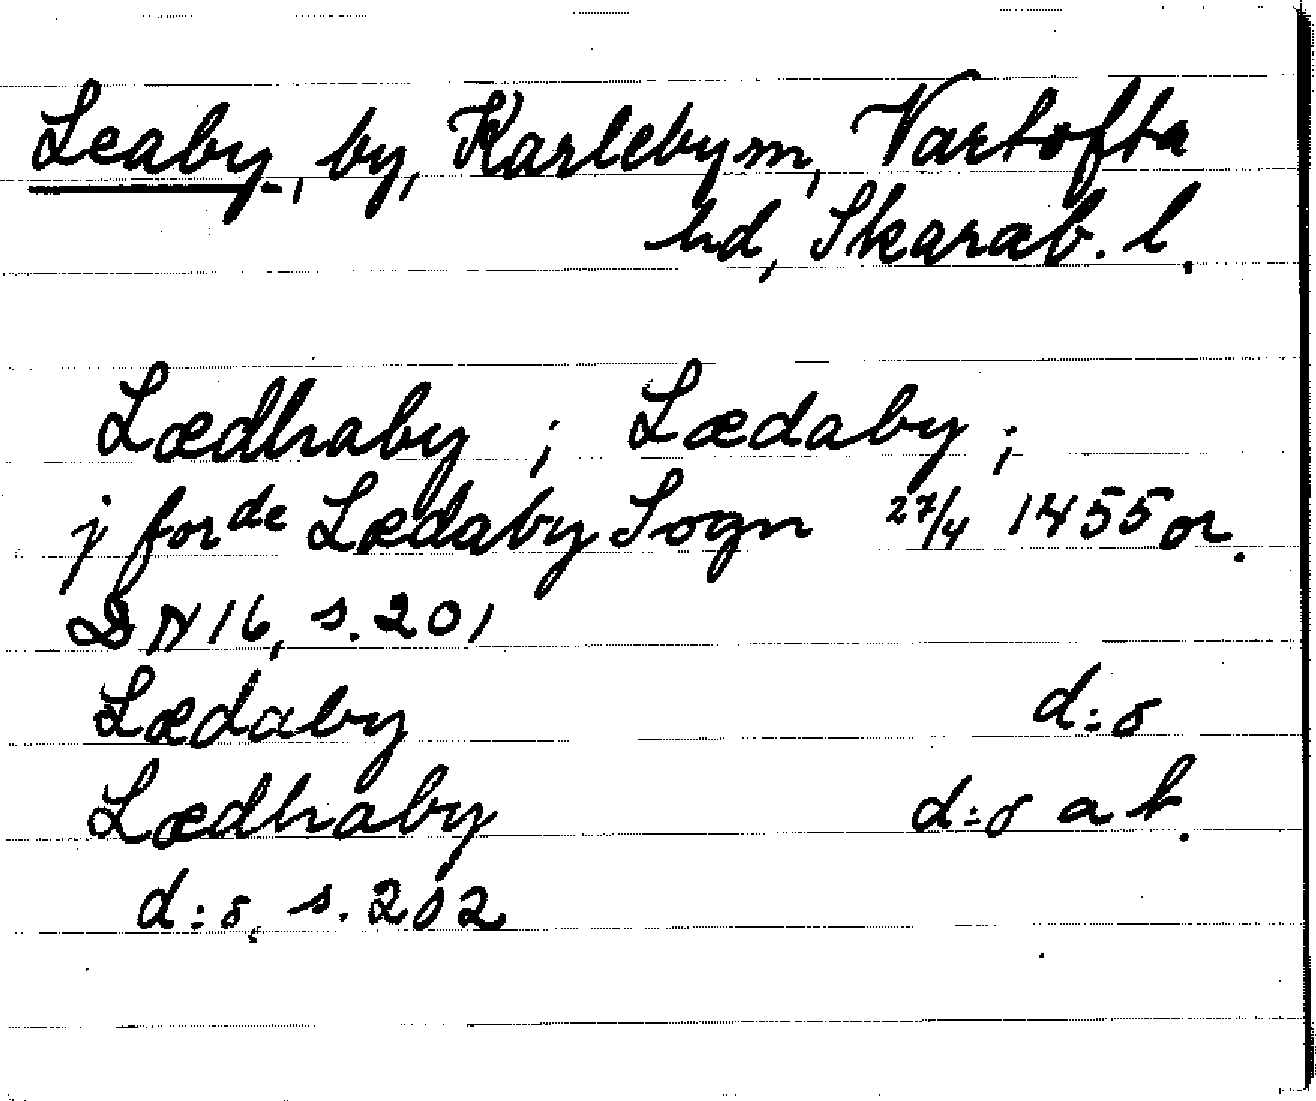 Leaby, by, Karleby sn, Vartofta
hd, Skarab. l.
Lædhaby ; Lædaby ;
j forde Lædaby Sogn 27/4 1455 or.
DN 16, s. 201
Lædaby d:o
Lædhaby d:o a t.
d:o, s. 202